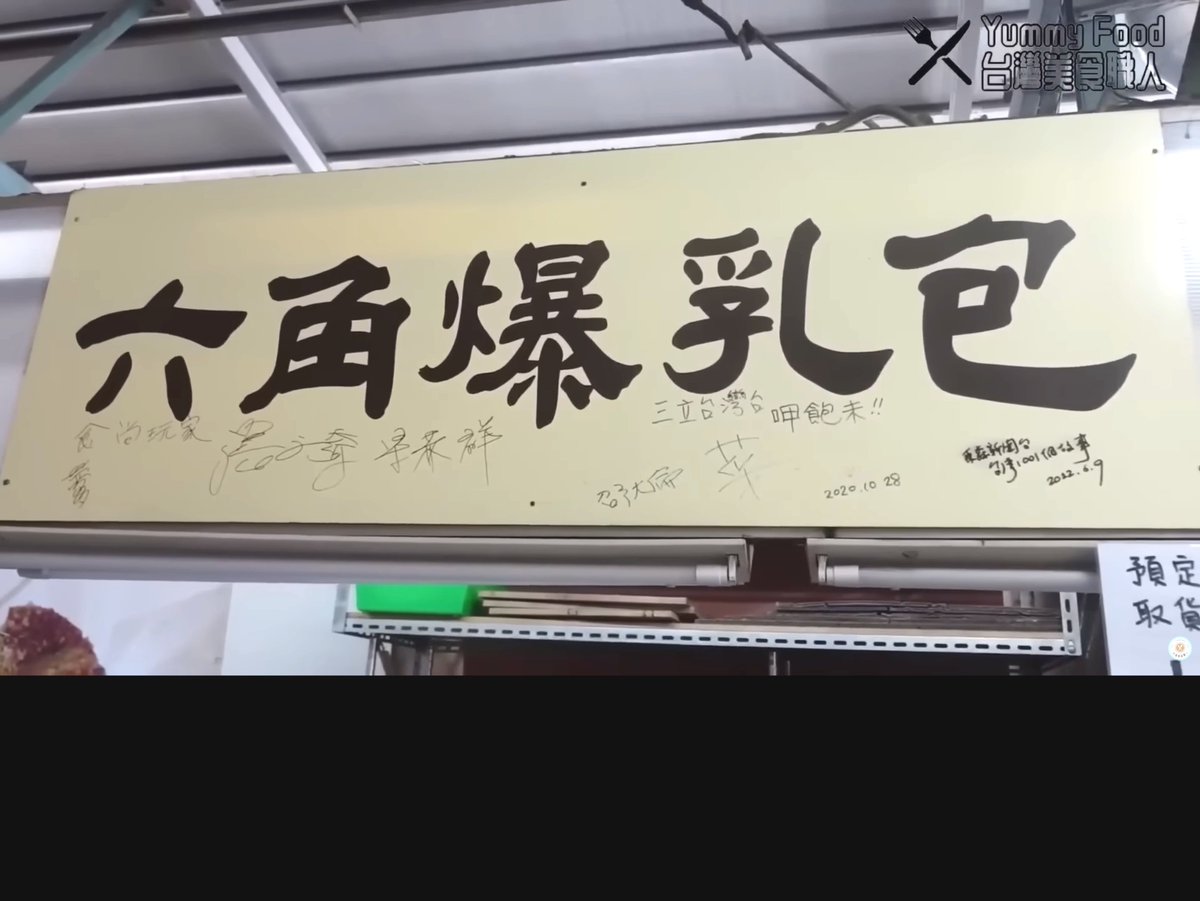 Yummy Food
台灣美食職人
六角爆乳包
食尚玩家
三立台灣台 呷飽未!!
2020.10 28
東森新聞台
台灣1001個故事
2022.6.9
預定
取貨